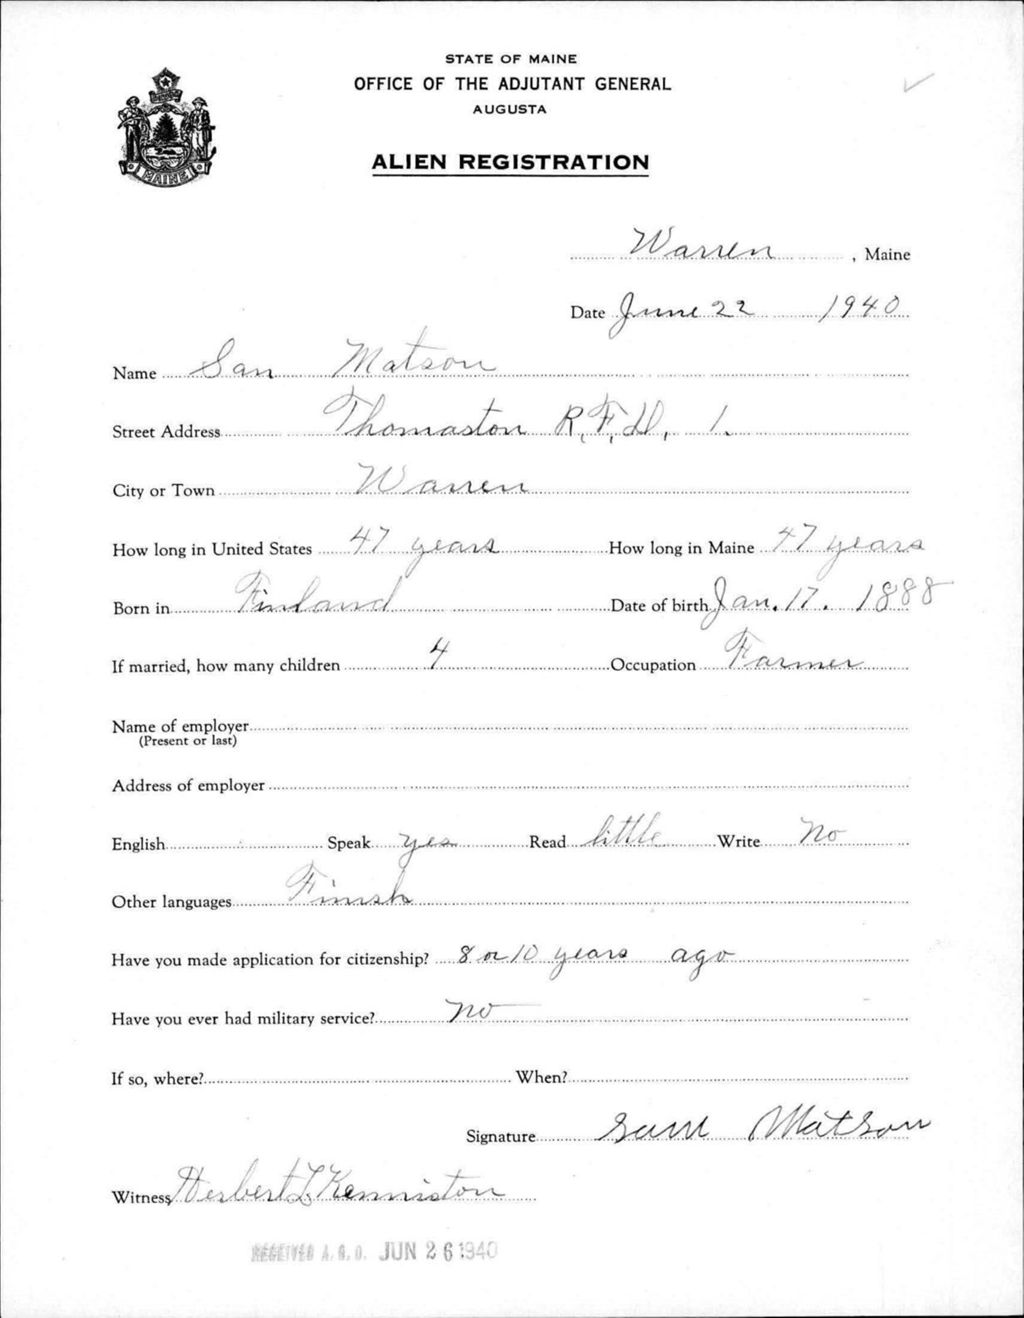 STATE OF MAINE
OFFICE OF THE ADJUTANT GENERAL
AUGUSTA
ALIEN REGISTRATION
MAINE
Warren, Maine
Date June 22 1940
Name San Matson
Street Address Thomaston R.F.D. 1.
City or Town Warren
How long in United States 47 years How long in Maine 47 years
Born in Finland Date of birth Jan. 17. 1888
If married, how many children 4 Occupation Farmer
Name of employer
(Present or last)
Address of employer
English Speak yes Read little Write No
Other languages Finish
Have you made application for citizenship? 8 or 10 years ago
Have you ever had military service? no
If so, where? When?
Signature Sam Matson
Witness Herbert L Kenniston
RECEIVED A.G.O. JUN 26 1940